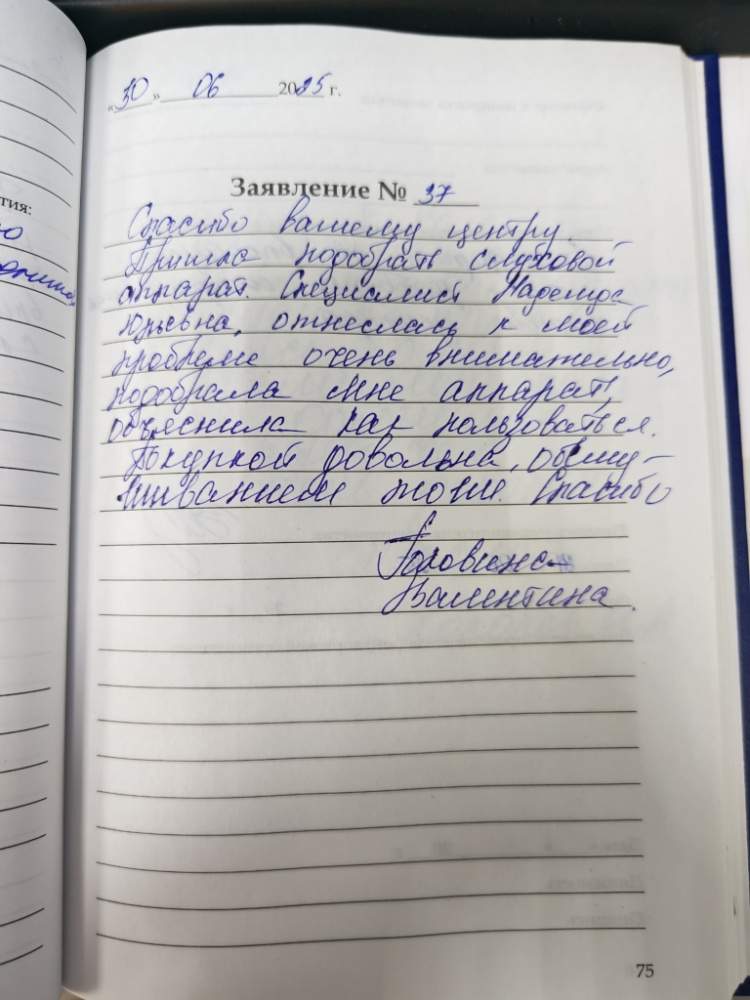 тия:
"30" 06 2025 г.
Заявление № 37
Спасибо вашему центру.
Пришла подобрать слуховой
аппарат. Специалист Надежда
Юрьевна, отнеслась к моей
проблеме очень внимательно,
подобрала мне аппарат,
объяснила как пользоваться.
Покупкой довольна, обслу-
живанием тоже. Спасибо
Головина
Валентина.
75